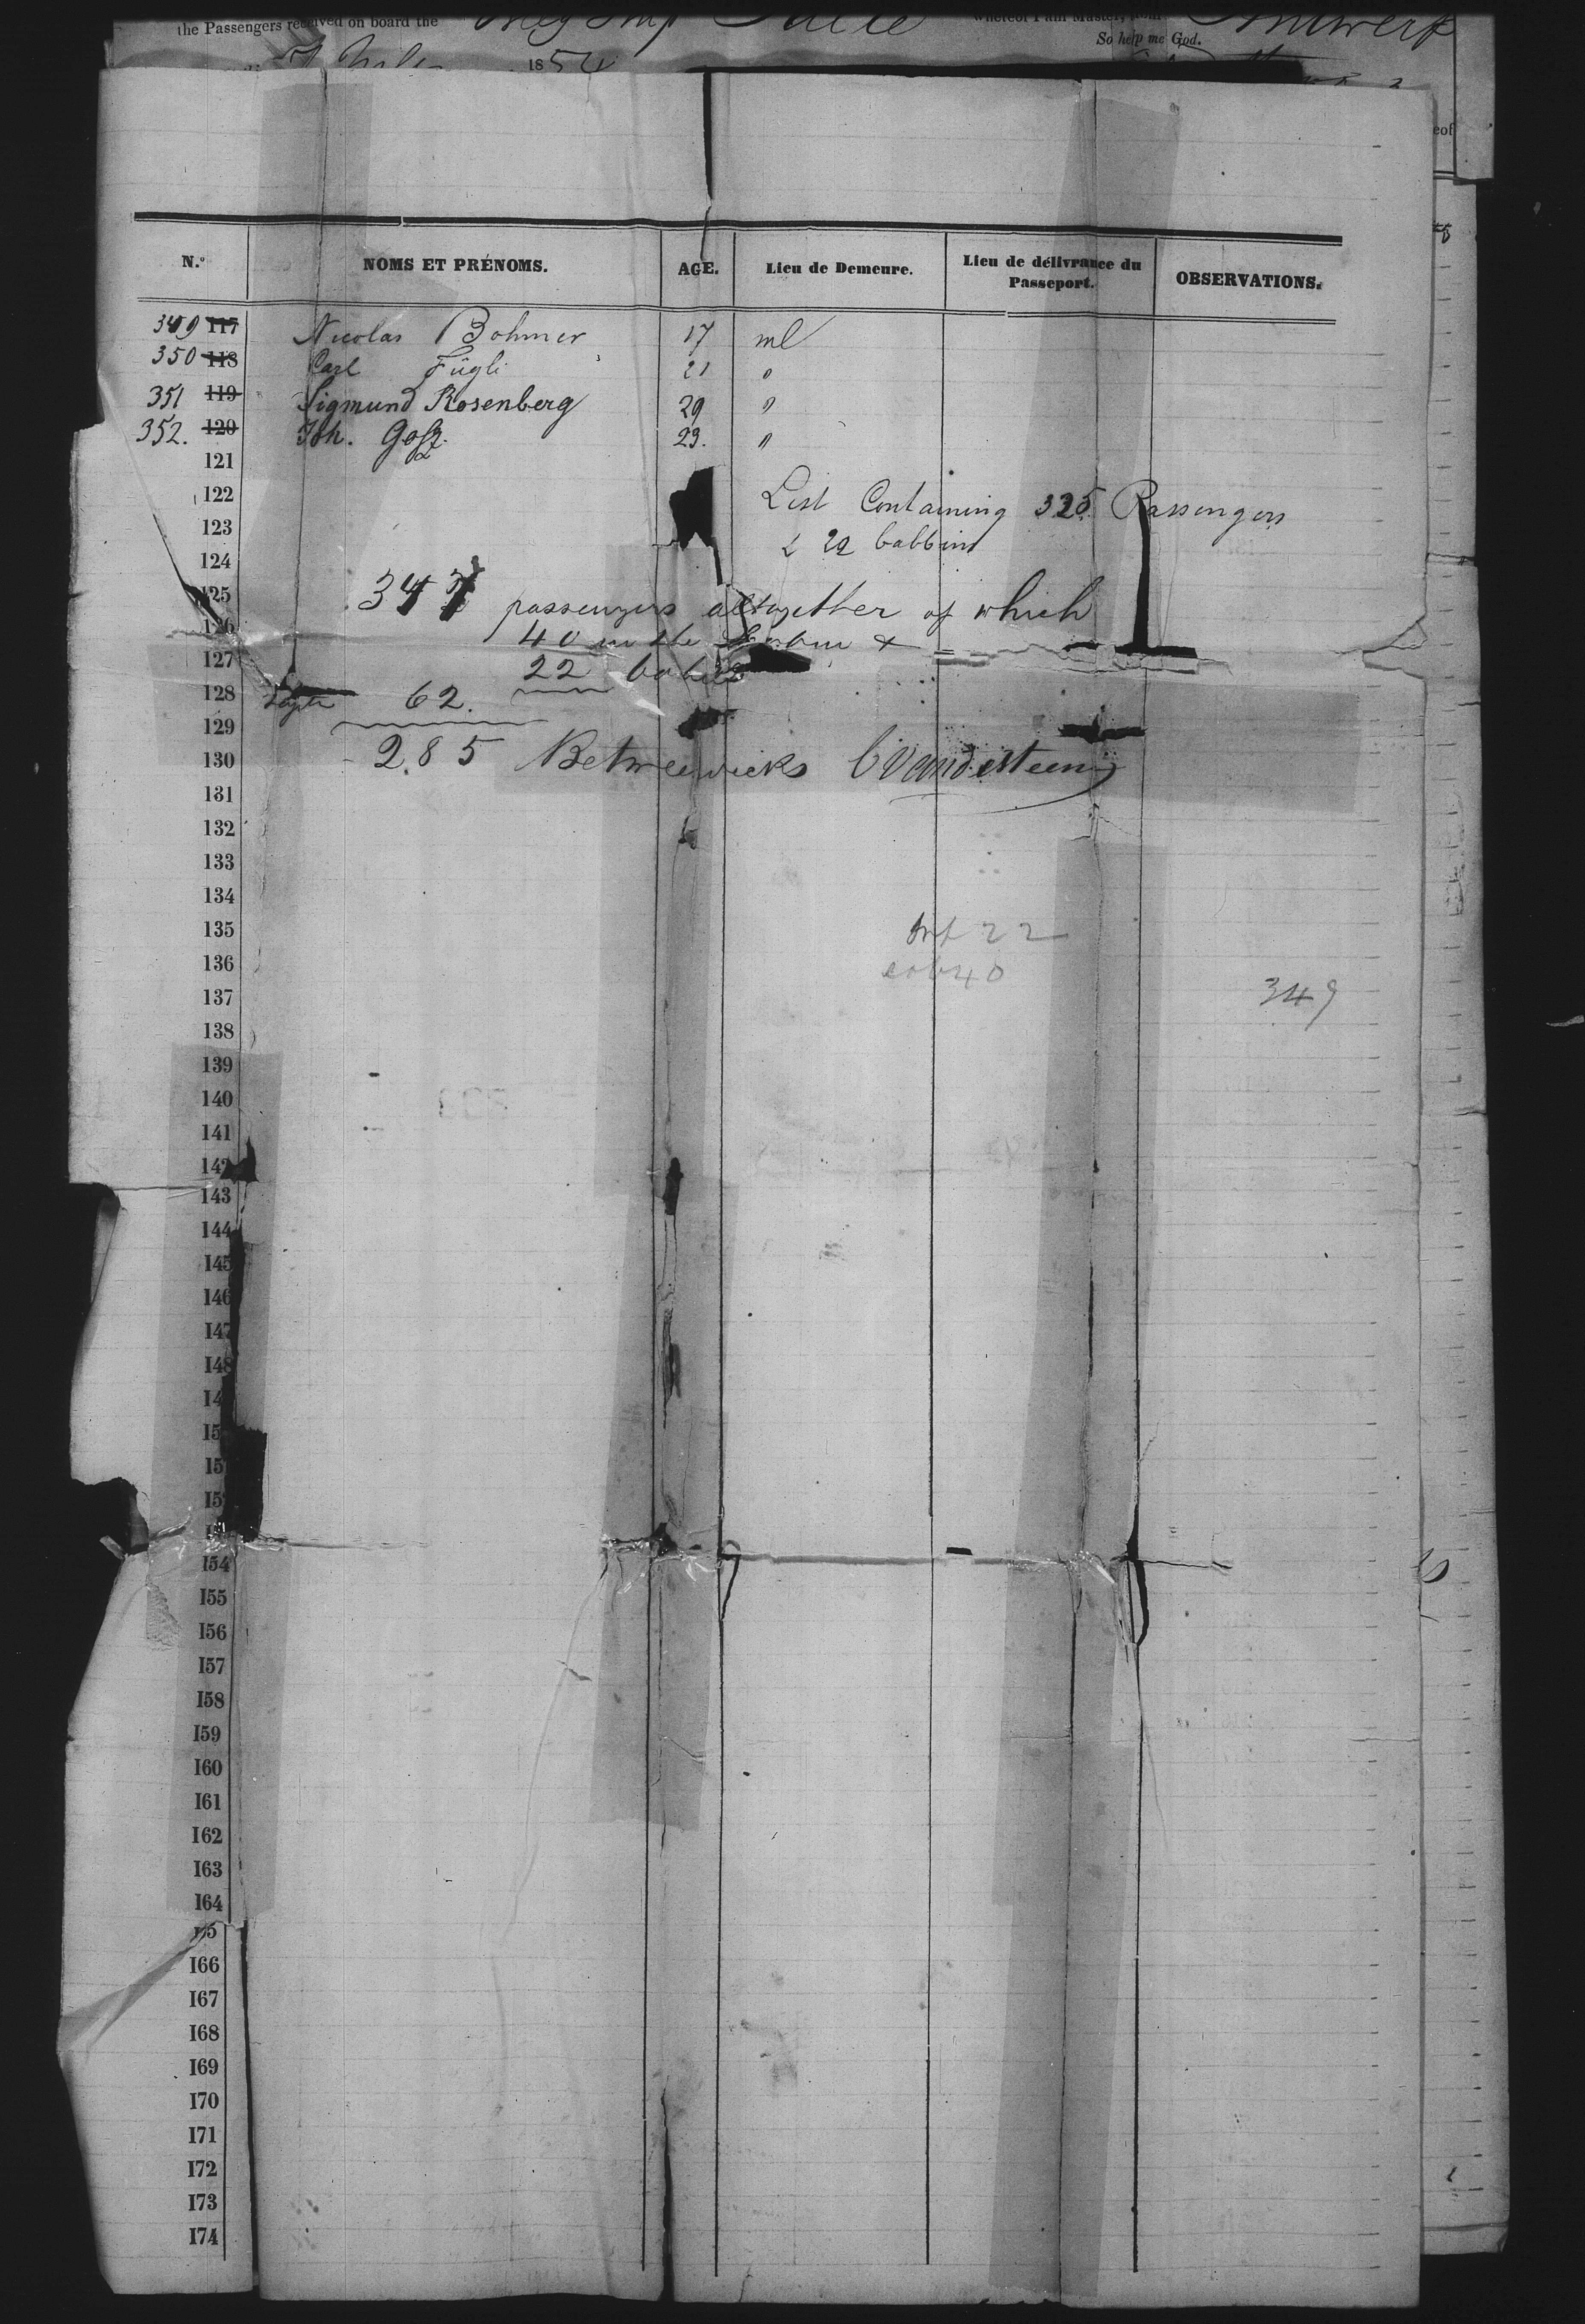 the Passengers received on board the Ship whereof I am Master, from Antwerp
So help me God.
1854
eof
N.º NOMS ET PRÉNOMS. AGE. Lieu de Demeure. Lieu de délivrance du Passeport. OBSERVATIONS.
349 117 Nicolas Bohmer 17 ml
350 118 Carl Fügli 21 "
351 119 Sigmund Rosenberg 29 "
352. 120 Joh. 23. "
121
122 List Containing 325 Passengers
123 & 22 babbins
124
125 347 passengers altogether of which
126 40 in the &
127 22 babies
128 62.
129
130 285 Betweendecks Vandesteen
131
132
133
134
135 Inf 22
136 cab 40
137 349
138
139
140
141
142
143
144
145
146
147
148
14
15
15
15
154
155
156
157
158
159
160
161
162
163
164
165
166
167
168
169
170
171
172
173
174